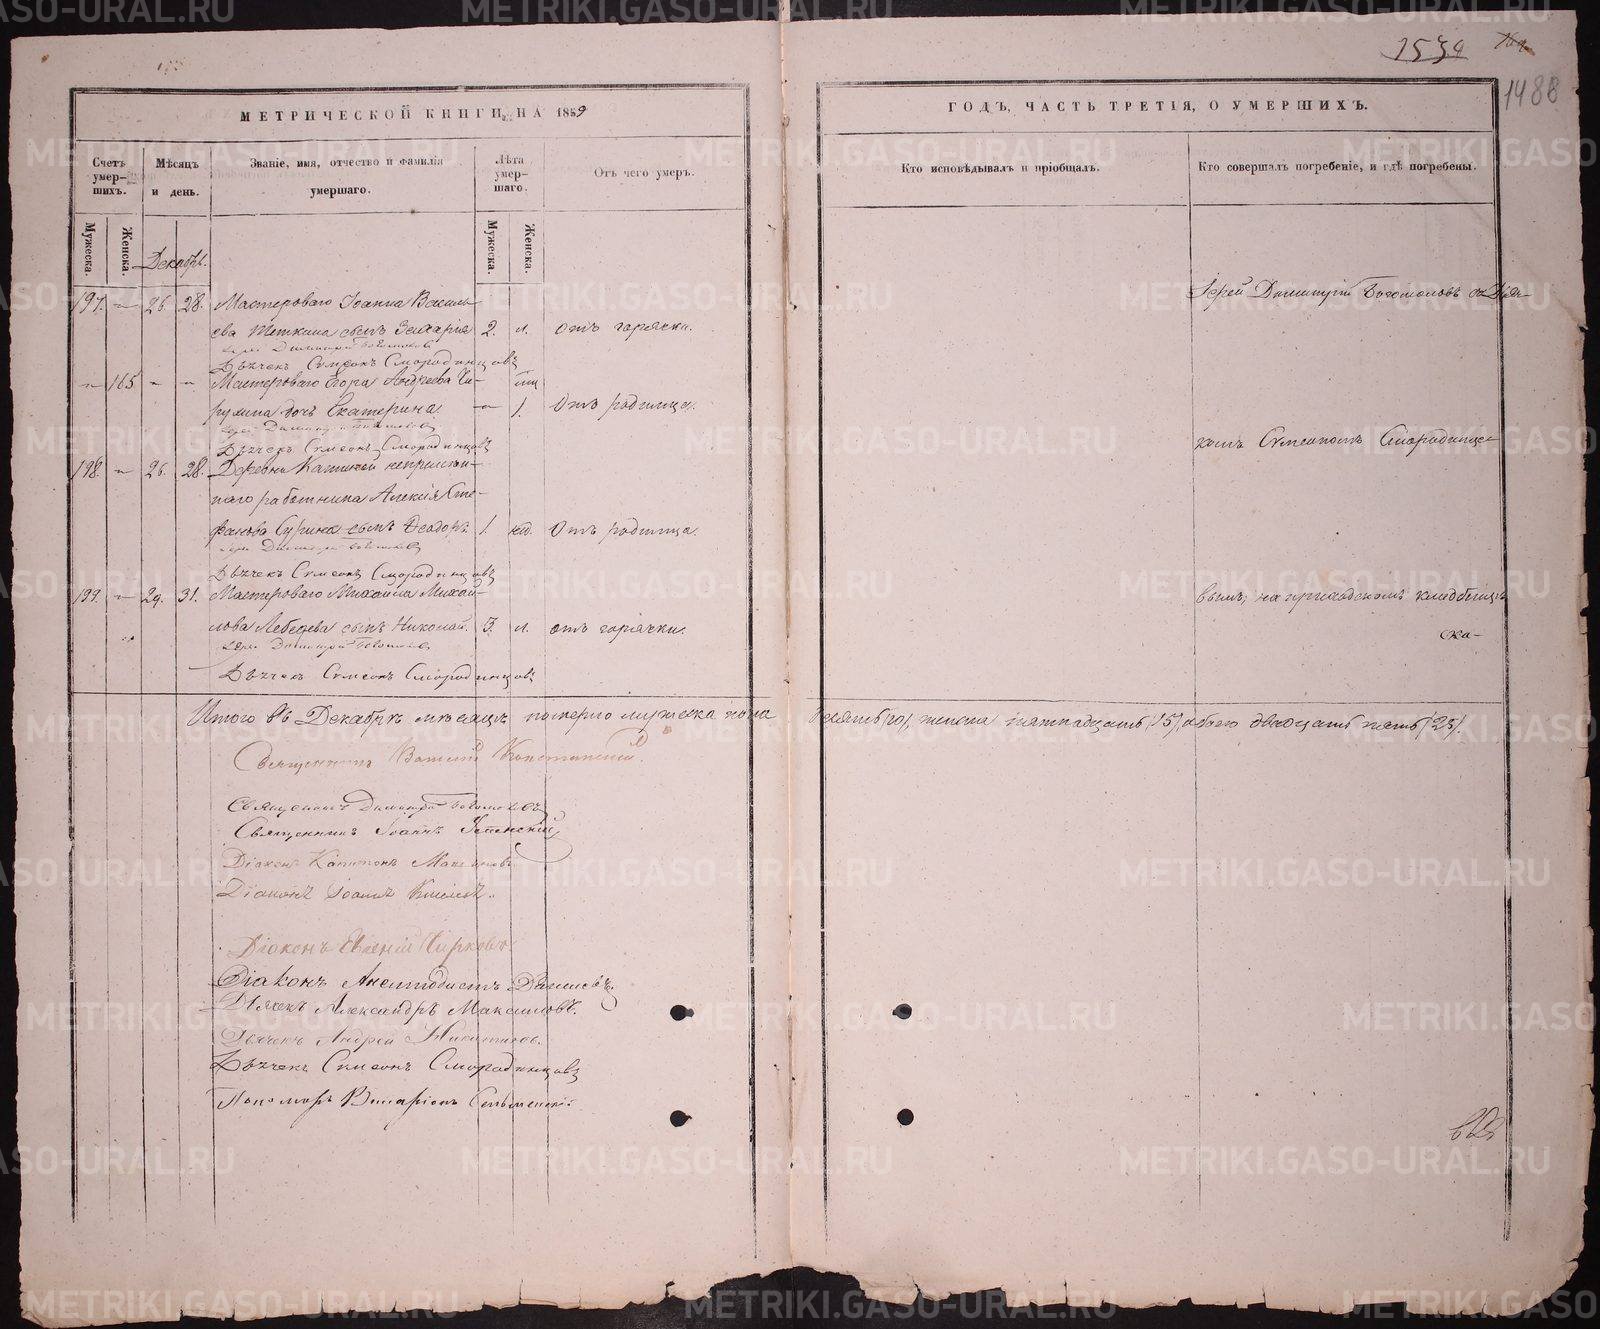 1539
1488
МЕТРИЧЕСКОЙ КНИГИ НА 1859
ГОДЪ, ЧАСТЬ ТРЕТІЯ, О УМЕРШИХЪ.
Счетъ умер-шихъ.
Мѣсяцъ и день.
Званіе, имя, отчество и фамилія умершаго.
Лѣта умер-шаго.
Отъ чего умеръ.
Кто исповѣдывалъ и пріобщалъ.
Кто совершалъ погребеніе, и гдѣ погребены.
Мужеска. Женска.
Мужеска. Женска.
Декабрь.
197. — 26. 28. Мастероваго Іоанна Василь-
ева Теткина сынъ Захарія 2. л. отъ горячки.
Іерей Димитрій Богомоловъ
Дьячекъ Сѵмеонъ Смородинцовъ
— 165 — — Мастероваго Егора Андреева Чи-
рулина дочь Екатерина — 1. Отъ родимца.
Іерей Димитрій Богомоловъ
Дьячекъ Сѵмеонъ Смородинцовъ
198. — 26. 28. Деревни непремѣн-
наго работника Алексія Сте-
фанова Сурина сынъ Ѳеодоръ 1. Отъ родимца.
Іерей Димитрій Богомоловъ
Дьячекъ Сѵмеонъ Смородинцовъ
199. — 29. 31. Мастероваго Михаила Михай-
лова Лебедева сынъ Николай. 3. л. отъ горячки.
Іерей Димитрій Богомоловъ
Дьячекъ Сѵмеонъ Смородинцовъ
Іерей Димитрій Богомоловъ съ Дьяч-
комъ Сѵмеономъ Смородинцо-
вымъ, на приходскомъ кладбищѣ
Итого въ Декабрѣ мѣсяцѣ померло мужеска пола десять /10/, женска пятнадцать /15/, обоего двадцать пять /25/.
Священникъ Василій
Священникъ Димитрій Богомоловъ
Священникъ Іоаннъ Успенскій
Діаконъ Капитонъ
Діаконъ Іоаннъ Киселевъ.
Діаконъ Евгеній Чирковъ
Діаконъ
Дьячекъ Александръ Максимовъ.
Дьячекъ Андрей Никитинъ.
Дьячекъ Сѵмеонъ Смородинцовъ
Пономарь Иларіонъ
METRIKI.GASO-URAL.RU